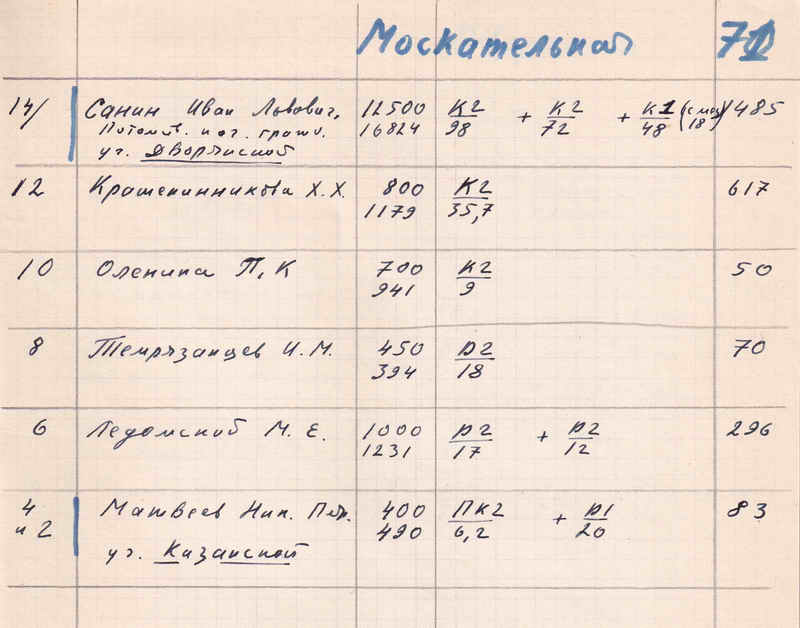 Москательной 71
14/ Санин Иван Львович, 12500 К2/98 + К2/72 + К1/48 (с маг 18) 1485
Потомв. поч. гражд. 16824
уг. Дворянской
12 Крашенинникова Х. Х. 800 К2/35,7 617
1179
10 Оленина П, К 700 К2/9 50
941
8 Темрязанцев И. М. 450 Д2/18 70
394
6 Ледомской М. Е. 1000 Д2/17 + Д2/12 296
1231
4 и 2 Матвеев Ник. Петр. 400 Пк2/6,2 + Д1/20 83
490
уг. Казанской